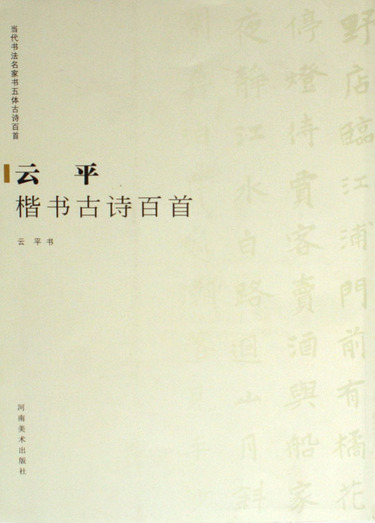 当代书法名家书五体古诗百首
云 平
楷书古诗百首
云 平 书
河南美术出版社
野店臨江浦門前有橘花
停燈待賈客賣酒與船家
夜靜江水白路迴山月斜